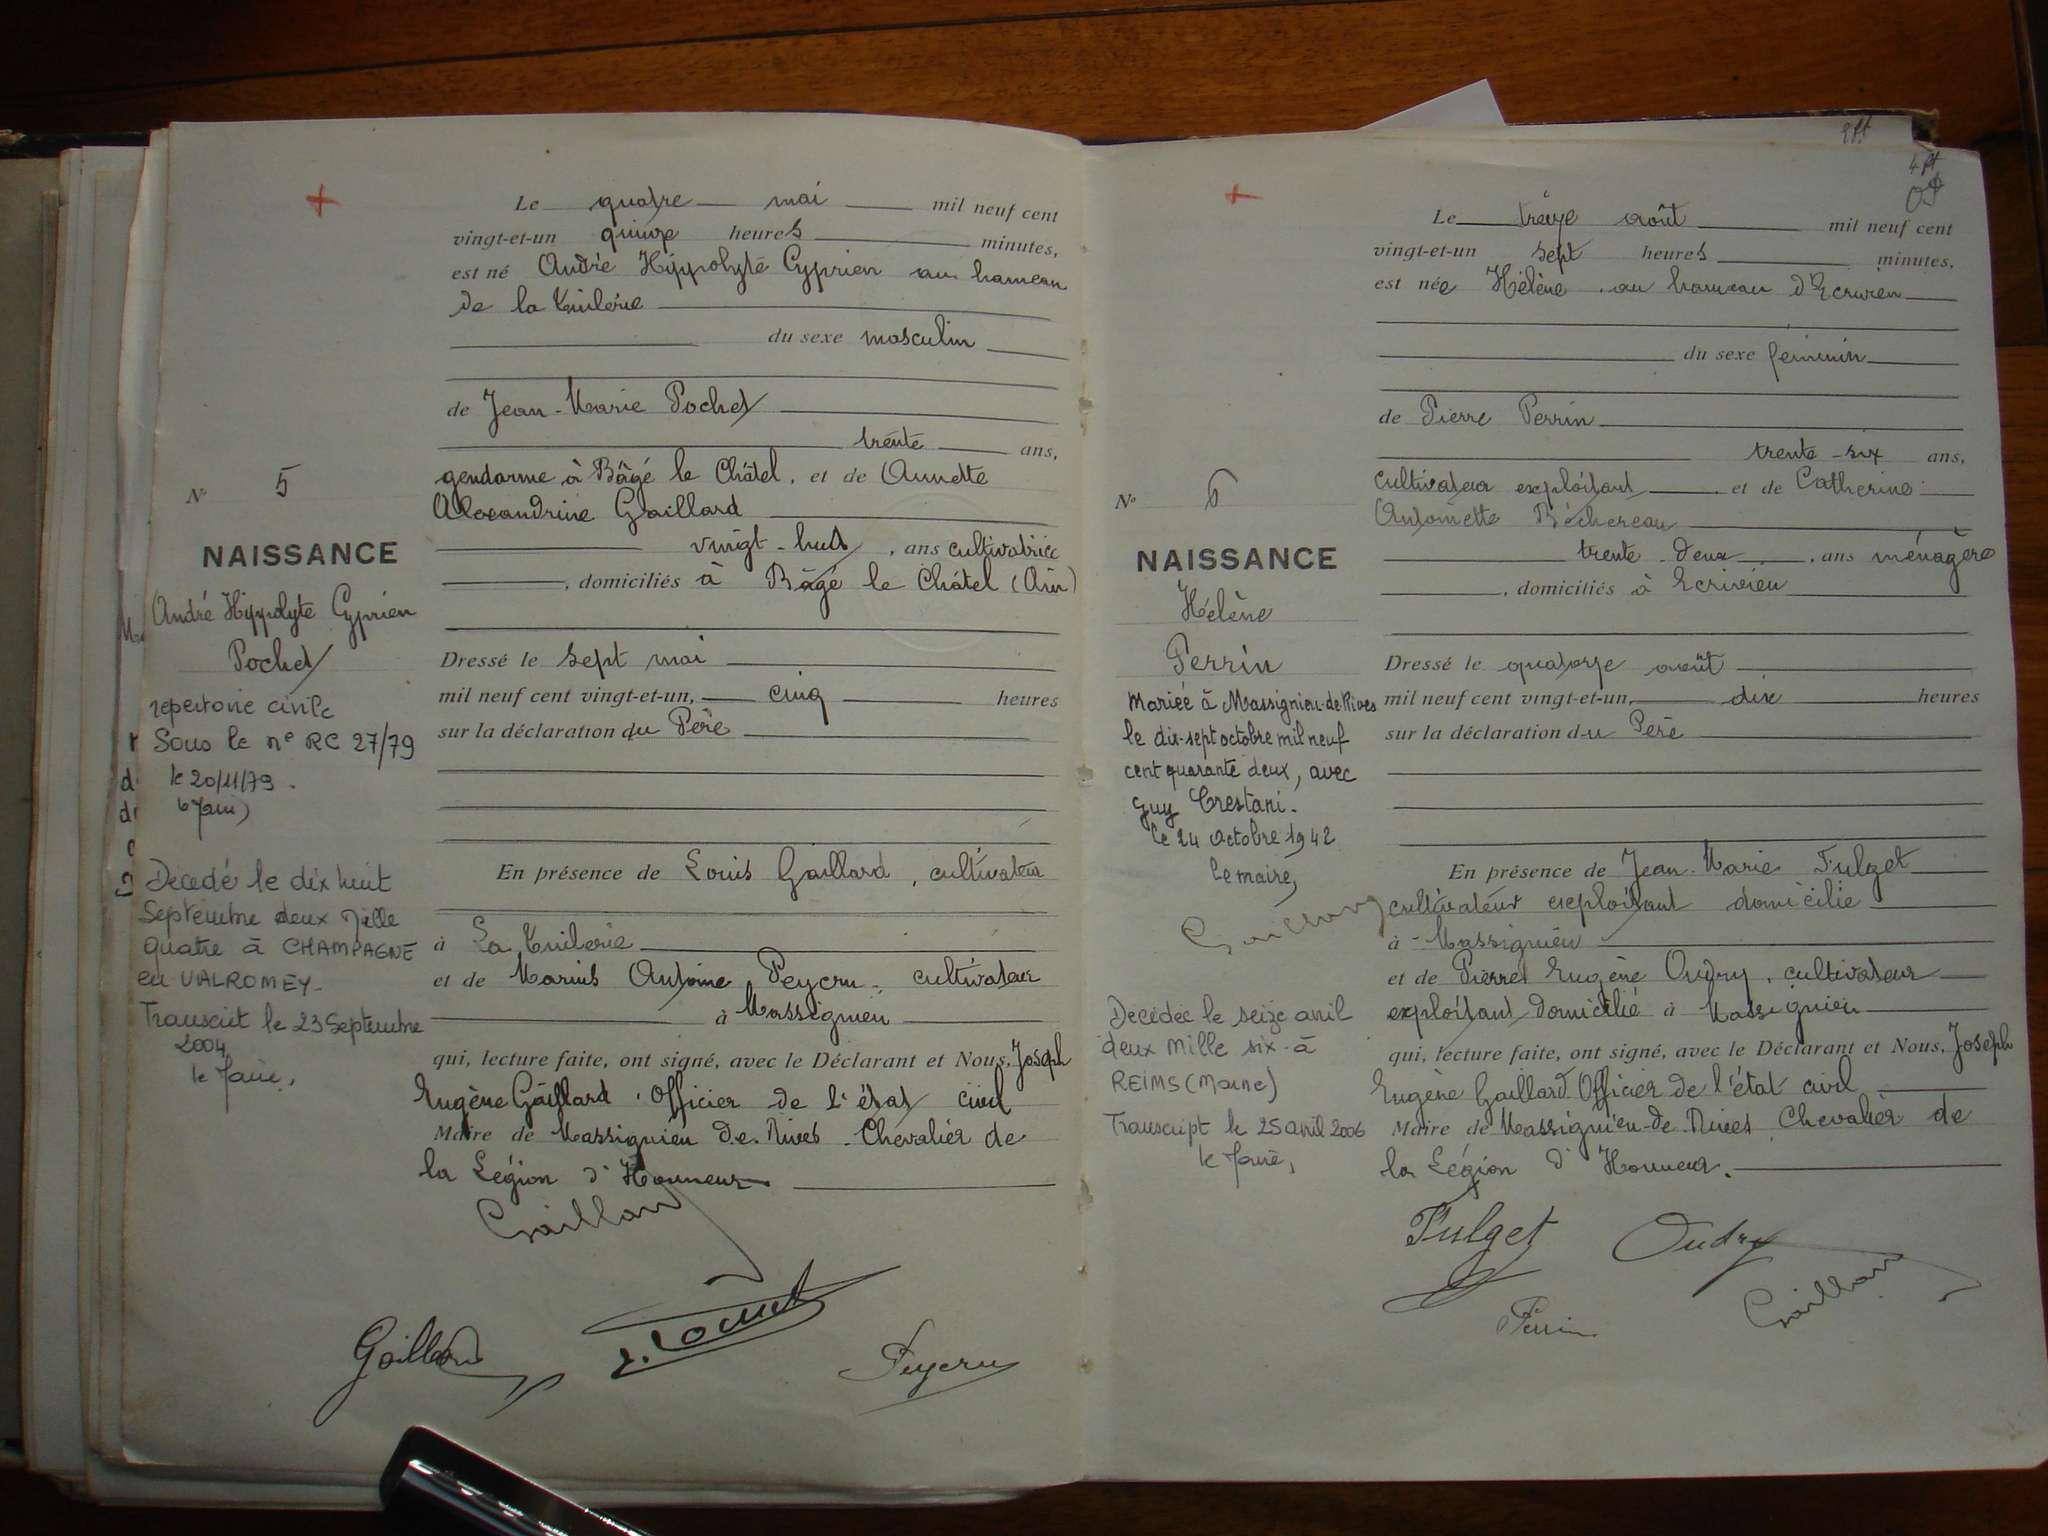 Le quatre mai mil neuf cent
vingt-et-un quinze heures minutes,
est né André Hippolyte Cyprien au hameau
de la Tuilerie
du sexe masculin
de Jean-Marie Pochet
trente ans,
gendarme à Bâgé le Châtel, et de Annette
Alexandrine Gaillard
vingt-huit, ans cultivatrice
, domiciliés à Bâgé le Châtel (Ain)
Dressé le sept mai
mil neuf cent vingt-et-un, cinq heures
sur la déclaration du Père
En présence de Louis Gaillard, cultivateur
à La Tuilerie
et de Marius Antoine Peycru, cultivateur
à Massignieu
qui, lecture faite, ont signé, avec le Déclarant et Nous, Joseph
Eugène Gaillard, Officier de l'état civil
Maire de Massignieu de Rives Chevalier de
la Légion d'Honneur
Gaillard
Gaillard
Peycru
N° 5
NAISSANCE
André Hippolyte Cyprien
Pochet
repertoire civile
Sous le n° RC 27/79
le 20/11/79.
Decedé le dix huit
Septembre deux Mille
quatre à CHAMPAGNE
en VALROMEY.
Transcrit le 23 Septembre
2004
le Maire,
4 ft
Le treize août mil neuf cent
vingt-et-un sept heures minutes,
est née Hélène au hameau d'Ecrivieu
du sexe féminin
de Pierre Perrin
trente-six ans,
cultivateur exploitant et de Catherine
Antoinette Béchereau
trente-deux, ans ménagère
, domiciliés à Ecrivieu
Dressé le quatorze août
mil neuf cent vingt-et-un, dix heures
sur la déclaration du Père
En présence de Jean-Marie Fulget
cultivateur exploitant domicilié
à Massignieu
et de Pierre Eugène Oudry, cultivateur
exploitant domicilié à Massignieu
qui, lecture faite, ont signé, avec le Déclarant et Nous, Joseph
Eugène Gaillard Officier de l'état civil
Maire de Massignieu-de-Rives Chevalier de
la Légion d'Honneur.
Fulget Oudry
Perrin Gaillard
N° 6
NAISSANCE
Hélène
Perrin
Mariée à Massignieu-de-Rives
le dix-sept octobre mil neuf
cent quarante deux, avec
Guy Crestani.
Le 24 octobre 1942
Le maire,
Gaillard
Decédée le seize avril
deux mille six à
REIMS (Marne)
Transcript le 25 avril 2006
le Maire,